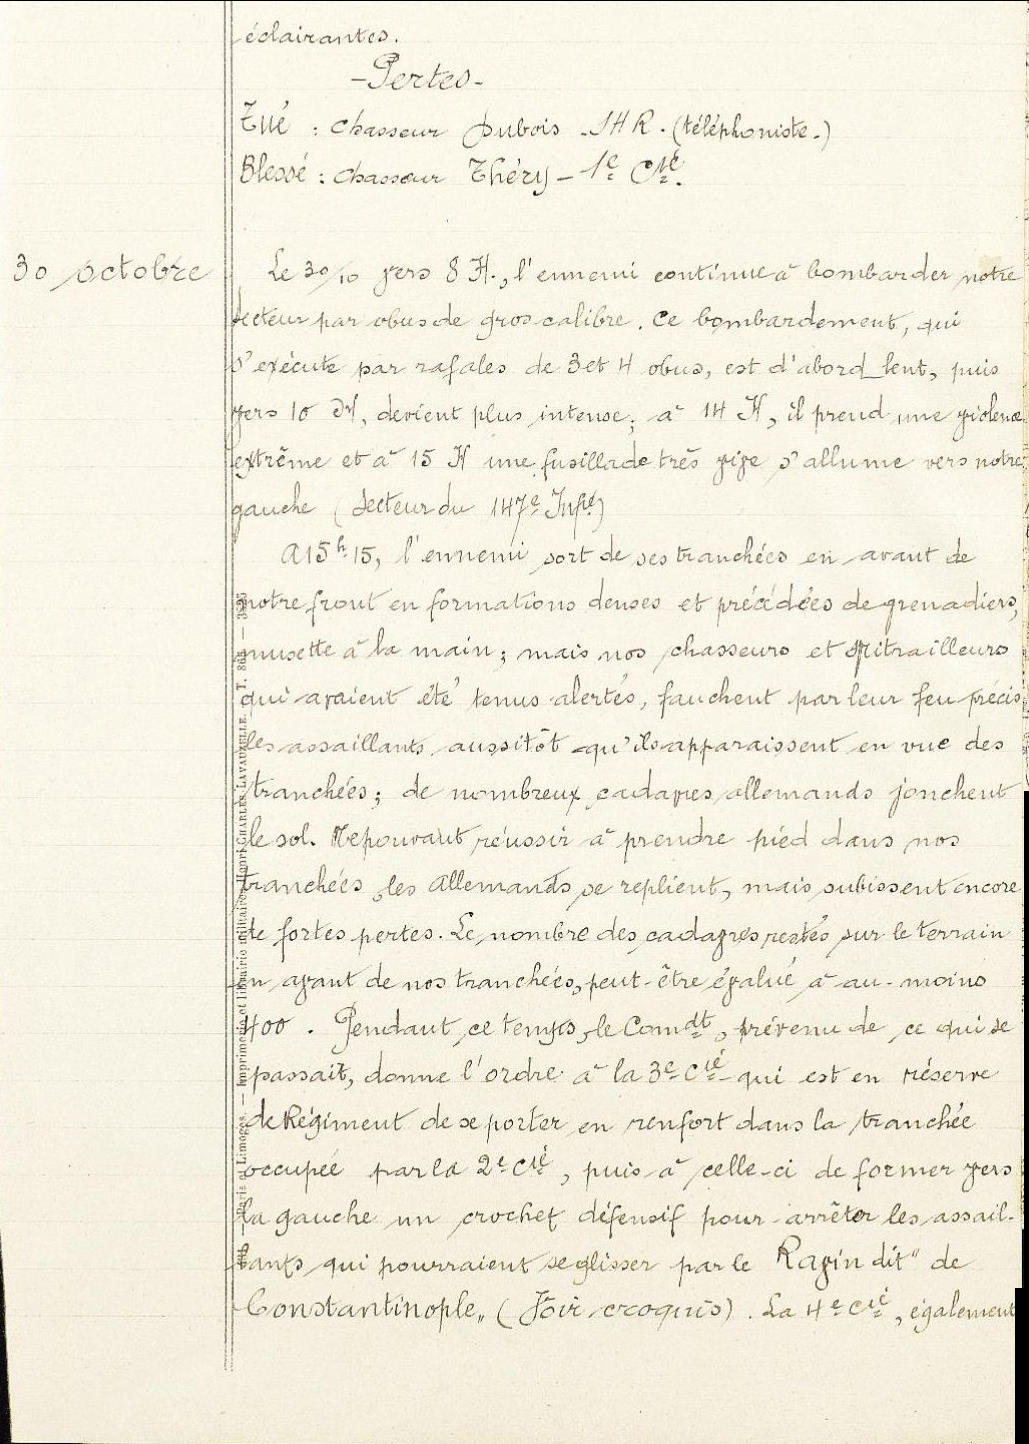 éclairantes.
- Pertes -
Tué : chasseur Dubois - SHR. (téléphoniste.)
Blessé : chasseur Théry - 1e Cié.
30 octobre
Le 30/10 vers 8 H., l'ennemi continue à bombarder notre
secteur par obus de gros calibre. Ce bombardement, qui
s'exécute par rafales de 3 et 4 obus, est d'abord lent, puis
vers 10 H, devient plus intense; à 14 H, il prend une violence
extrême et à 15 H une fusillade très vive s'allume vers notre
gauche (secteur du 147e Infie)
A 15h15, l'ennemi sort de ses tranchées en avant de
notre front en formations denses et précédées de grenadiers,
musette à la main; mais nos chasseurs et mitrailleurs
qui avaient été tenus alertés, fauchent par leur feu précis
les assaillants aussitôt qu'ils apparaissent en vue des
tranchées; de nombreux cadavres allemands jonchent
le sol. Ne pouvant réussir à prendre pied dans nos
tranchées, les Allemands se replient, mais subissent encore
de fortes pertes. Le nombre des cadavres restés sur le terrain
en avant de nos tranchées, peut-être évalué à au-moins
400. Pendant ce temps, le Comdt, prévenu de ce qui se
passait, donne l'ordre à la 3e Cié qui est en réserve
de Régiment de se porter en renfort dans la tranchée
occupée par la 2e Cié, puis à celle-ci de former vers
la gauche un crochet défensif pour arrêter les assail-
lants qui pourraient se glisser par le Ravin dit "de
Constantinople" (Voir croquis). La 4e Cié, également
Paris et Limoges. — Imprimerie et librairie militaires Henri CHARLES-LAVAUZELLE.